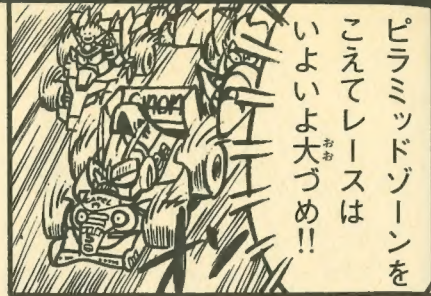 ピラミッドゾーンを
こえてレースは
いよいよ大づめ!!
おお